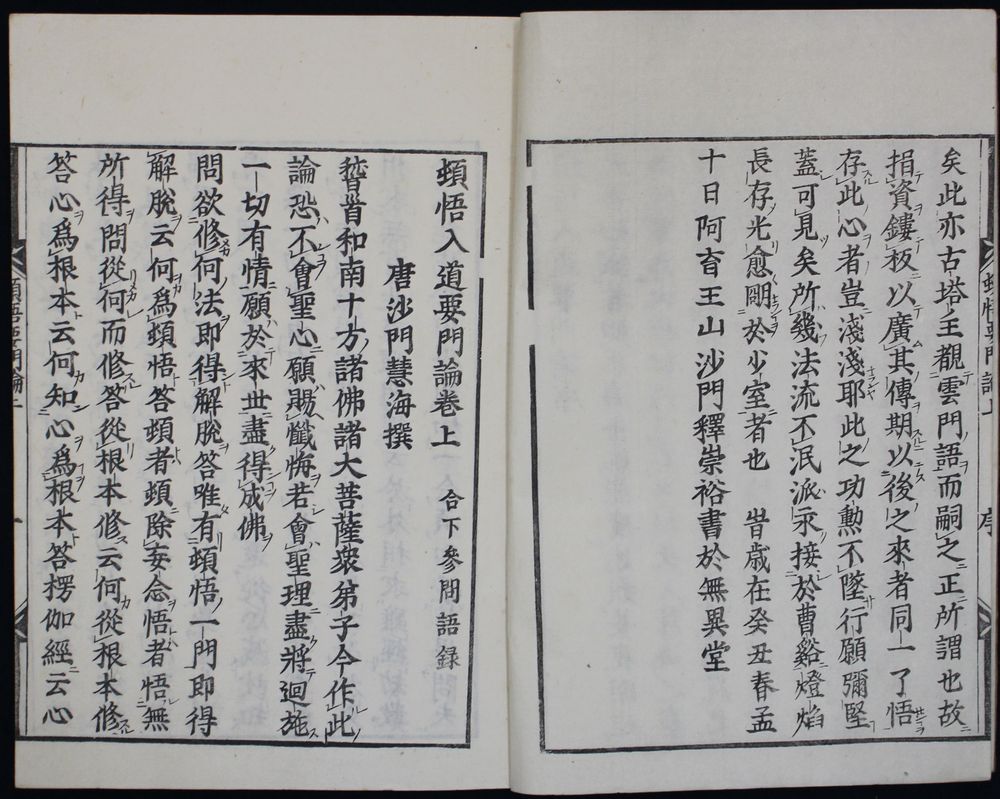 矣此亦古塔主覩雲門語而嗣之正所謂也故
捐資鏤板以廣其傳期以後之來者同一了悟
存此心者豈淺淺耶此之功勲不墜行願彌堅
蓋可見矣所幾法流不泯派永接於曹谿燈焰
長存光愈朙於少室者也 旹歳在癸丑春孟
十日阿育王山沙門釋崇裕書於無異堂
序
頓悟入道要門論卷上 合下參問語録
唐沙門慧海撰
稽首和南十方諸佛諸大菩薩衆弟子今作此
論恐不會聖心願賜懺悔若會聖理盡將迴施
一切有情願於來世盡得成佛
問欲修何法即得解脫答唯有頓悟一門即得
解脫云何為頓悟答頓者頓除妄念悟者悟無
所得問從何而修答從根本修云何從根本修
答心為根本云何知心為根本答楞伽經云心